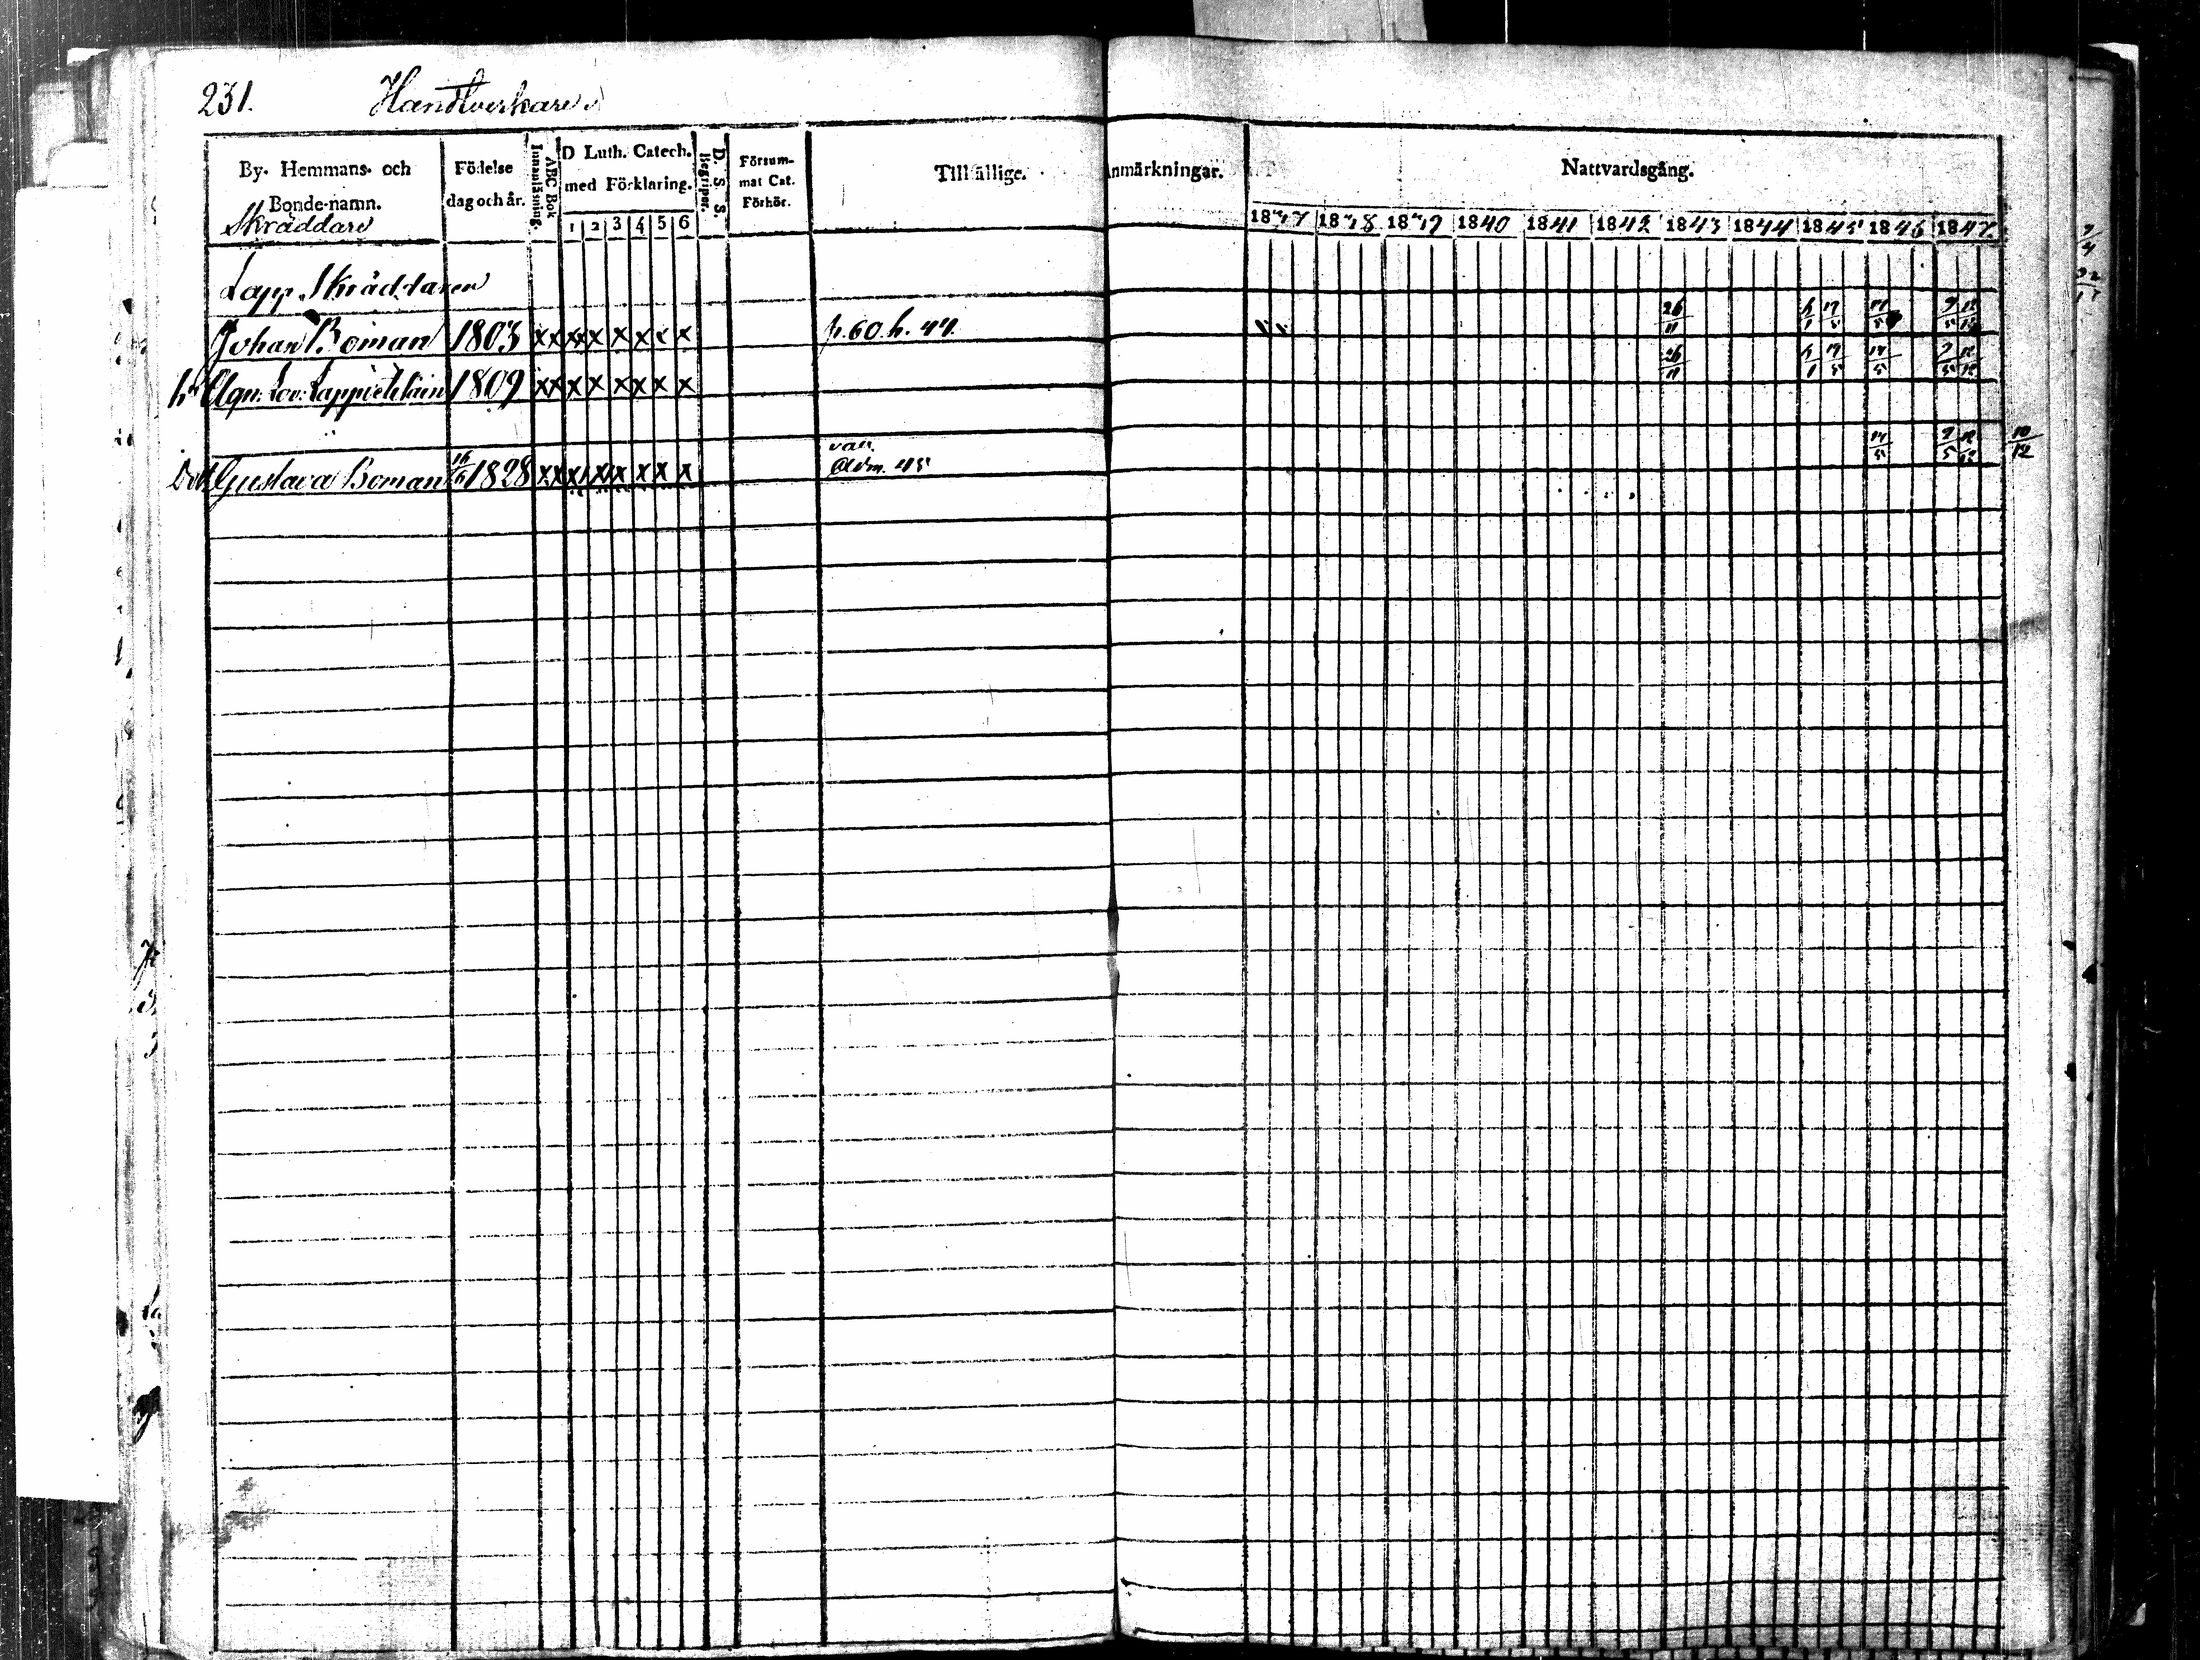 231. Handtverkare
By. Hemmans- och Bonde-namn.
Skräddare
Födelse dag och år.
ABC Bok Innanläsning.
D Luth. Catech. med Förklaring.
1 2 3 4 5 6
D. S. S. Begriper.
Försum- mat Cat. Förhör.
Tillfällige. Anmärkningar.
Nattvardsgång.
1837 1838 1839 1840 1841 1842 1843 1844 1845 1846 1847
Lapp Skräddaren
Johan Boman 1803 x x x x x x x x p. 60. h. 44 26/11 17/5 9/5 12/12
h. Agn: Lov: 1809 x x x x x x x x 26/11 17/5 9/5 12/12
Dott. Gustava Boman 16/6 1828 x x x x x x x x 9/5 12/12 10/12